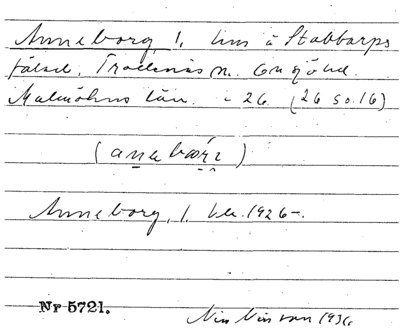 Anneborg, 1. hus å Stabbarps
fälad. Trollenäs sn. Onsjö hd.
Malmöhus län. - 26 (26 so. 16)
(anebɷrj)
Anneborg, 1. kla. 1926-.
Nr 5721.
1936